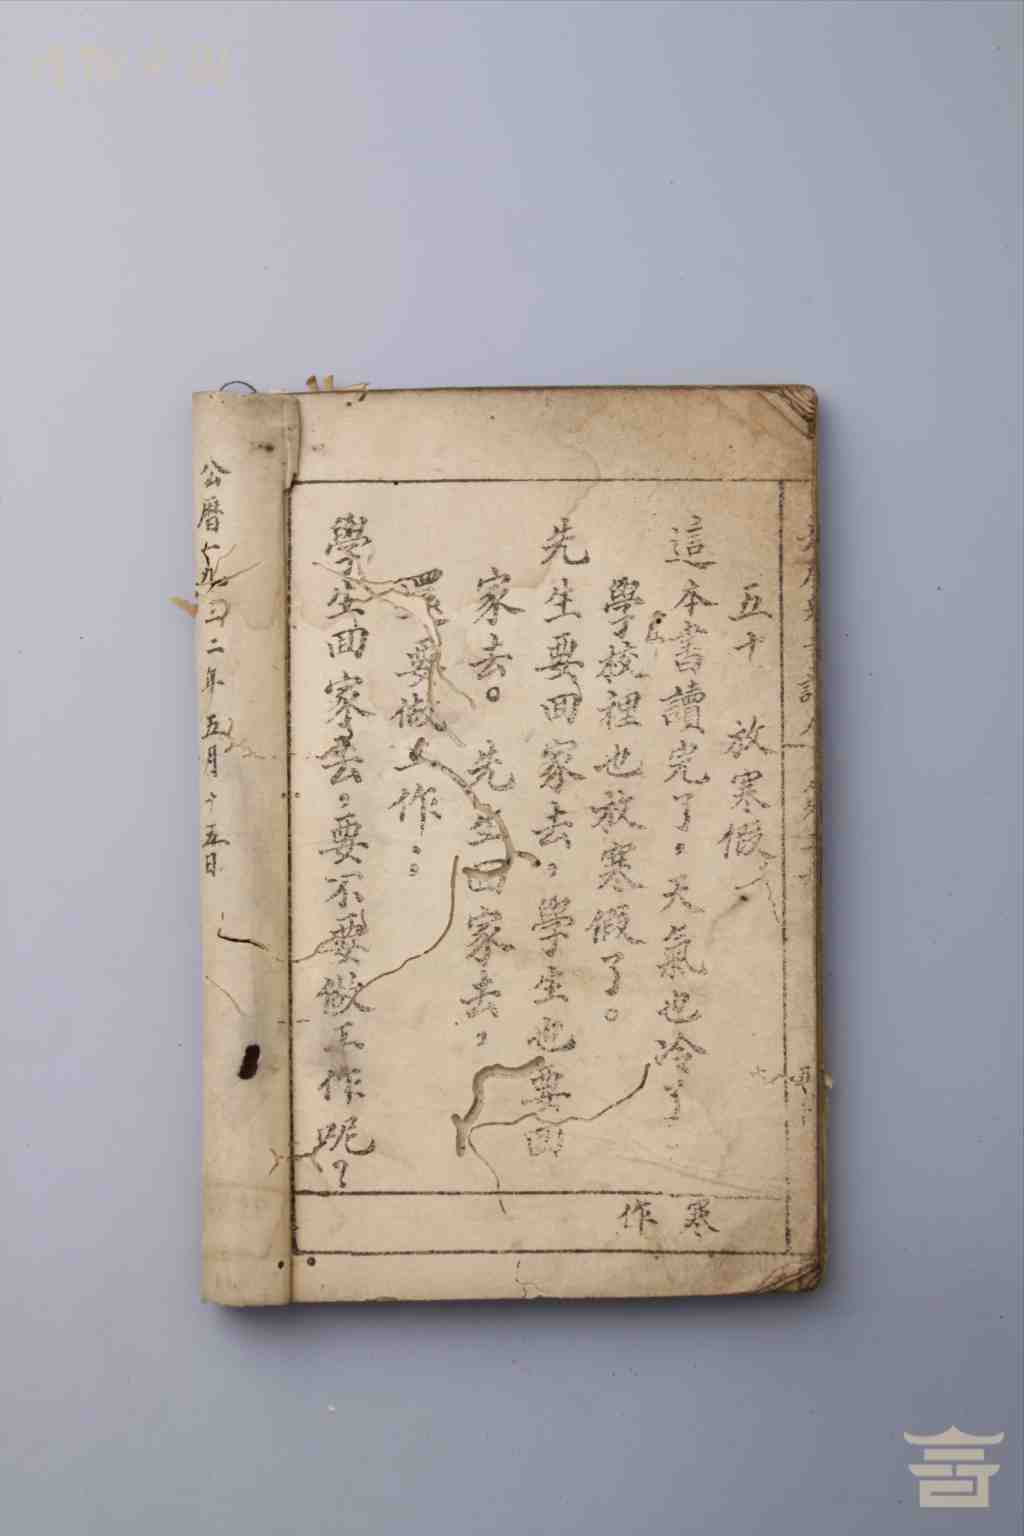 五十 放寒假
這本書讀完了，天氣也冷了，
學校裡也放寒假了。
先生要回家去，學生也要回
家去。先生回家去，
還要做工作：
學生回家去，要不要做工作呢？
寒作
公曆一九三二年五月十五日